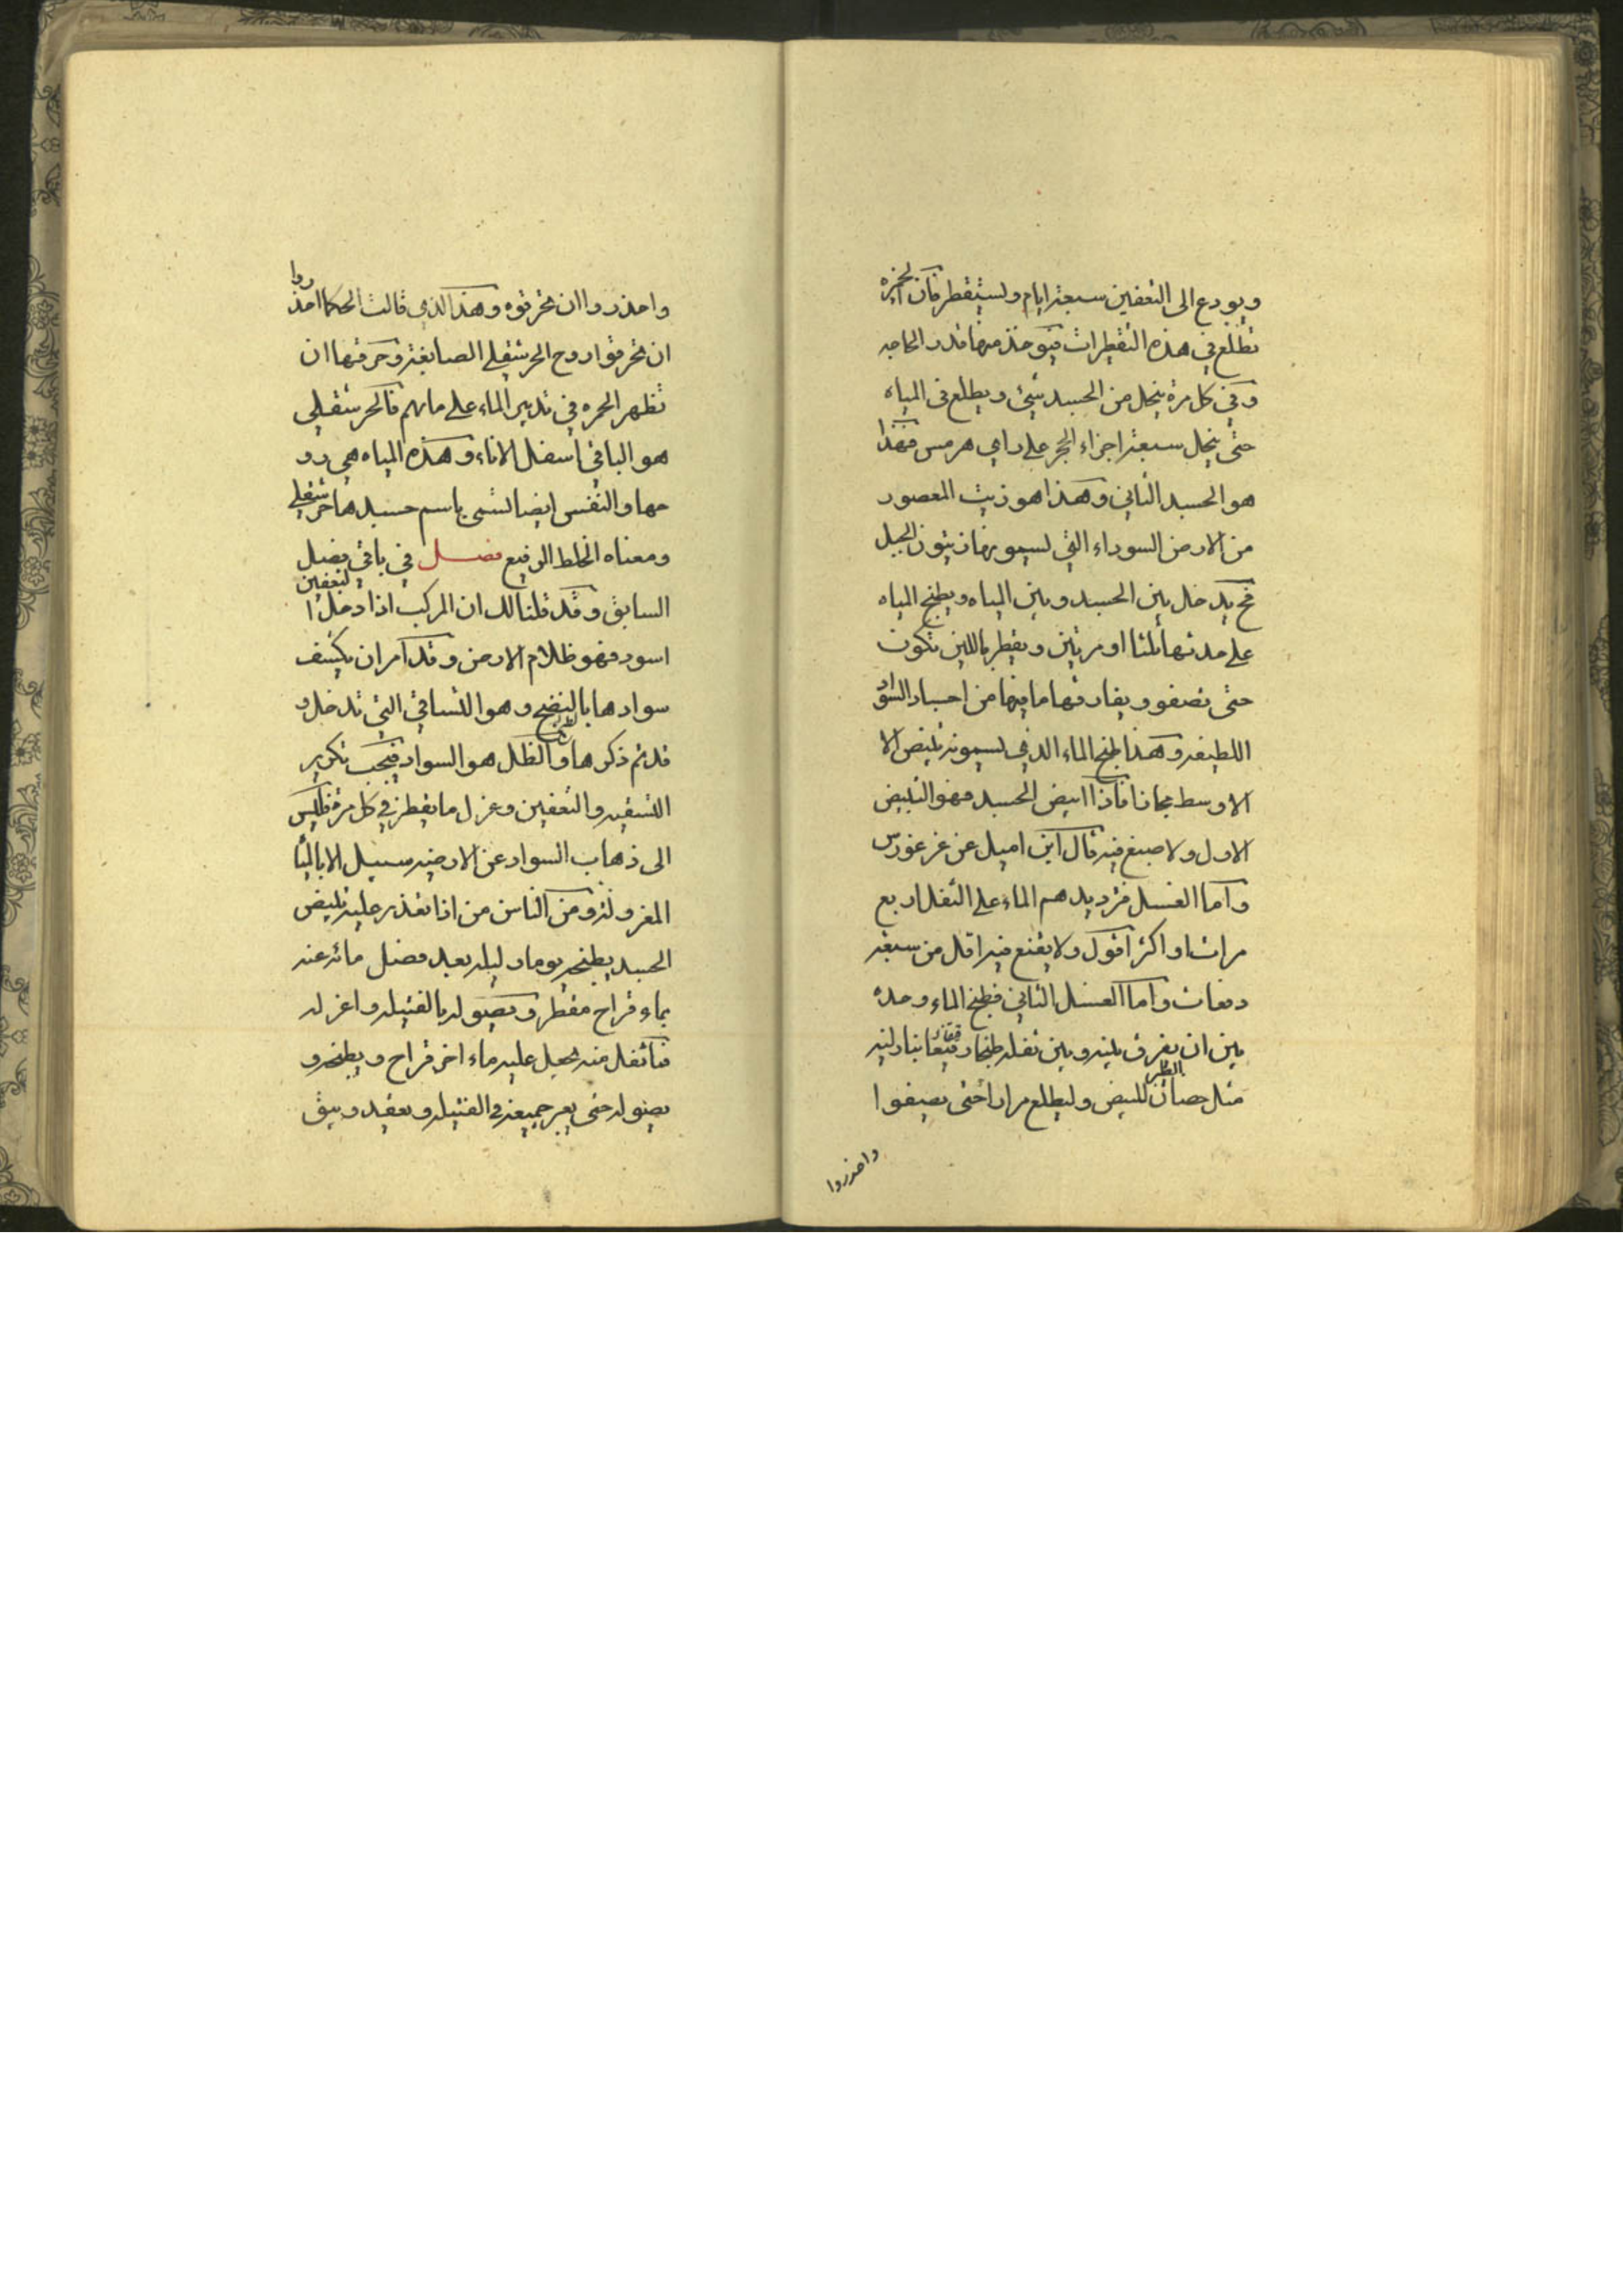 ويودع الى التعفين سبعة ايام ويستقطر فان الحمرة
تطلع في هذه التقطيرات فيوخذ منها قدر الحاجه
وفي كل مرة ينحل من الجسد شيئ ويطلع في المياه
حتى ينحل سبعة اجزاء الحجر على راي هرمس فهذا
هو الجسد الثاني وهذا هو زيت المعصور
من الارض السوداء التي يسمونها زيتون الجبل
فح يدخل بين الجسد وبين المياه ويطبخ المياه
على حدتها ثلثا او مرتين ويقطر باللين تكون
حتى تصفو ويفارقها ما فيها من اجساد السواد
اللطيفه وهذا طبخ الماء الذي يسمونه تبيض الا
الاوسط مجازا فاذا ابيض الجسد فهو التبيض
الاول ولا صبغ فيه قال ابن اميل عن غرغورس
واما الغسل فترديدهم الماء على الثفل اربع
مرات او اكثر اقول ولا يقنع فيه اقل من سبعة
دفعات واما الغسل الثاني فطبخ الماء وحده
بين ان يفرق بينه وبين ثفله طبخا رقيقا بنار لينه
مثل حضان الطير للبيض وليطلع مرارا حتى يصفوا
واحذروا
واحذروا ان تحرقوه وهذا الذي قالت الحكما احذروا
ان تحرقوا روح الحرشقلى الصابغة وحرقتها ان
تظهر الحمره في تدبير الماء على مائهم فالحرشقلى
هو الباقي اسفل الاناء وهذه المياه هي رو
حها والنفس ايضا تسمى باسم جسدها حرشقلى
ومعناه الخلط الرفيع فصل في باقي فصل
السابق وقد قلنا لك ان المركب اذا دخل التعفين
اسود فهو ظلام الارض وقد امر ان يكشف
سوادها بالنضج وهو التساقي التي تدخل و
قد تم ذكرها والظل هو السواد فيجب تكرير
التسقيه والتعفين وعزل ما يقطر في كل مرة فليس
الى ذهاب السواد عن الارضيه سبيل الا بالماء
المغزول ومن الناس من اذا تعذر عليه تبيض
الجسد يطبخه يوما وليله بعد فصل مائه عنه
بماء قراح مقطر ويصوله بالفتيله واعزله
فما ثفل منه يجعل عليه ماء اخر قراح ويطبخه و
يصوله حتى يعبر جميعه في الفتيله ويعقد ويبق